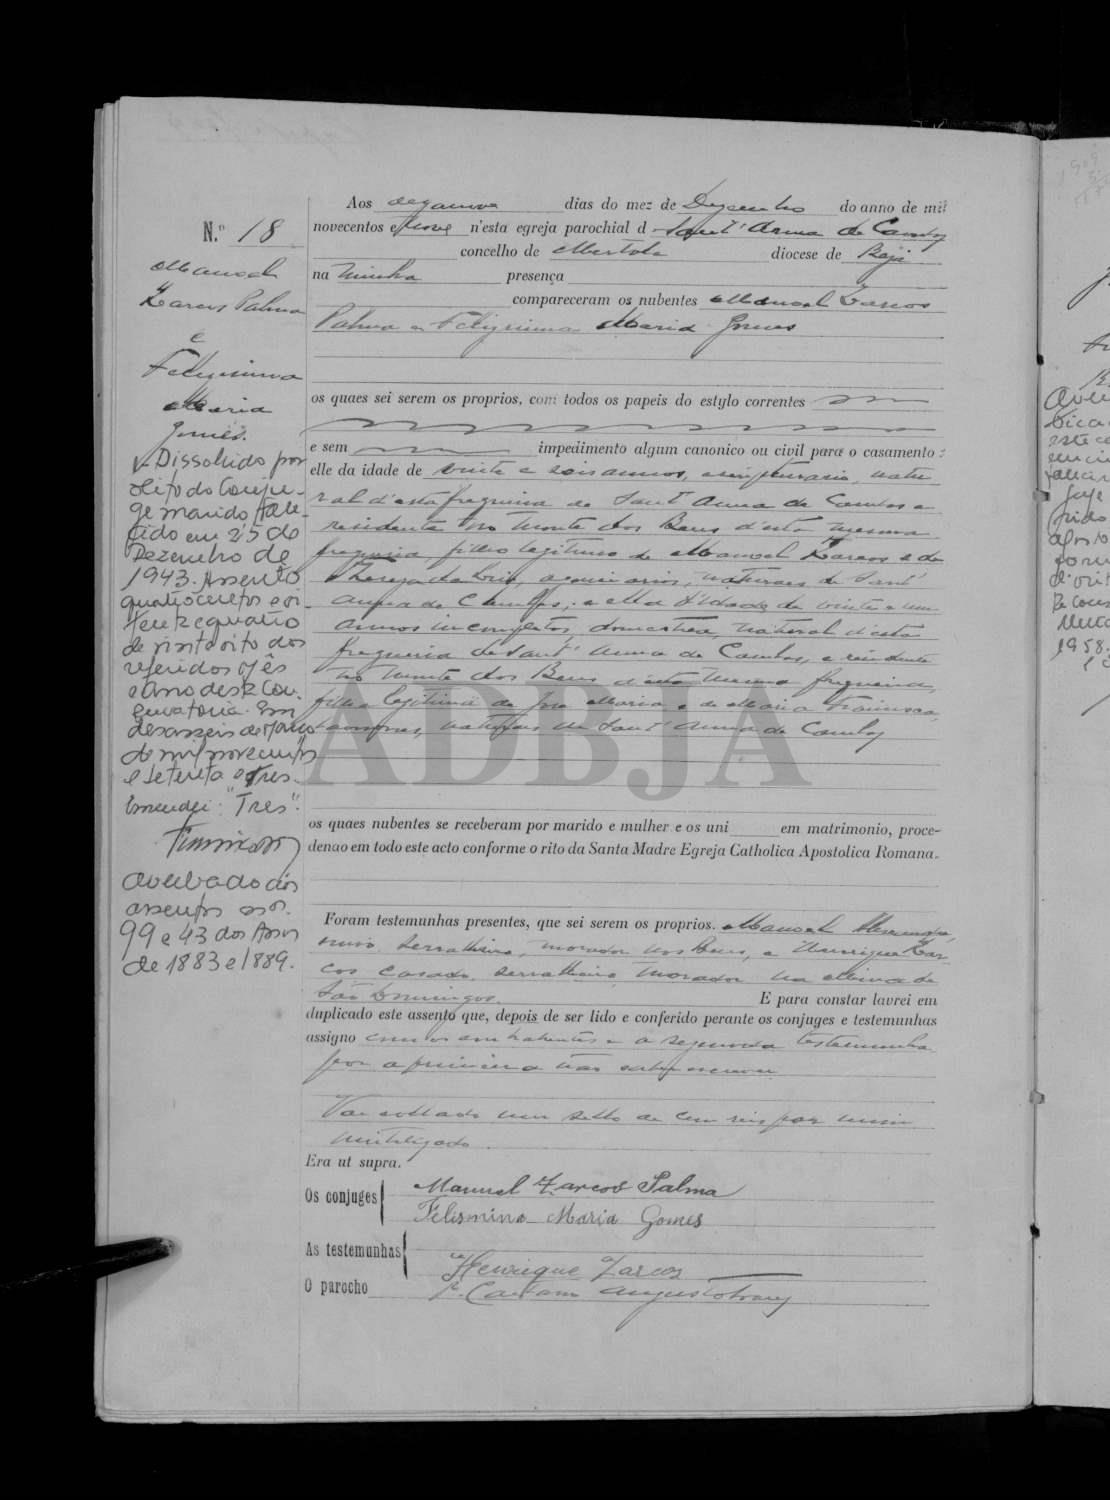 N.º 18
Manoel
Zarcos Palma
e
Felizmina
Maria
Gomes.
Dissolvido por
obito do conju-
ge marido, fale-
cido em 25 de
Dezembro de
1943. Assento
quatrocentos e oi-
tenta e quatro
de vinte oito dos
referidos mês
e ano desta Con-
servatoria. Em
desasseis de
de mil novecentos
e setenta e tres.
Emendei: "Tres".
Averbado aos
assentos nos.
99 e 43 dos Anos
de 1883 e 1889.
Aos deganove dias do mez de Dezembro do anno de mil
novecentos e nove n'esta egreja parochial d Sant'Anna de Cambas
concelho de Mertola diocese de Beja
na minha presença
compareceram os nubentes Manoel Zarcos
Palma e Felizmina Maria Gomes
os quaes sei serem os proprios, com todos os papeis do estylo correntes
e sem impedimento algum canonico ou civil para o casamento:
elle da idade de vinte e seis annos, natu-
ral d'esta freguezia de Sant'Anna de Cambas e
residente no Monte dos Bens d'esta mesma
freguezia filho legitimo de Manoel Zarcos e de
Thereza naturaes de Sant'
Anna de Cambas; e ella d'idade de vinte e um
annos incompletos, domestica, natural d'esta
freguezia de Sant'Anna de Cambas, e residente
no Monte dos Bens d'esta mesma freguezia,
filha legitima de Jose Maria e de Maria Francisca,
naturaes de Sant'Anna de Cambas
os quaes nubentes se receberam por marido e mulher e os uni em matrimonio, proce-
dendo em todo este acto conforme o rito da Santa Madre Egreja Catholica Apostolica Romana.
Foram testemunhas presentes, que sei serem os proprios. Manoel
serralheiro, morador nos Bens, e Henrique Zar-
cos casado, serralheiro, morador na Mina de
São Domingos. E para constar lavrei em
duplicado este assento que, depois de ser lido e conferido perante os conjuges e testemunhas
assigno com os contrahentes e a segunda testemunha
por a primeira não saber escrever
Vae collado um sello de cem reis por mim
inutilizado.
Era ut supra.
Os conjuges Manuel Zarcos Palma
Felismina Maria Gomes
As testemunhas
Henrique Zarcos
O parocho P. Caetano Augusto
ADBJA